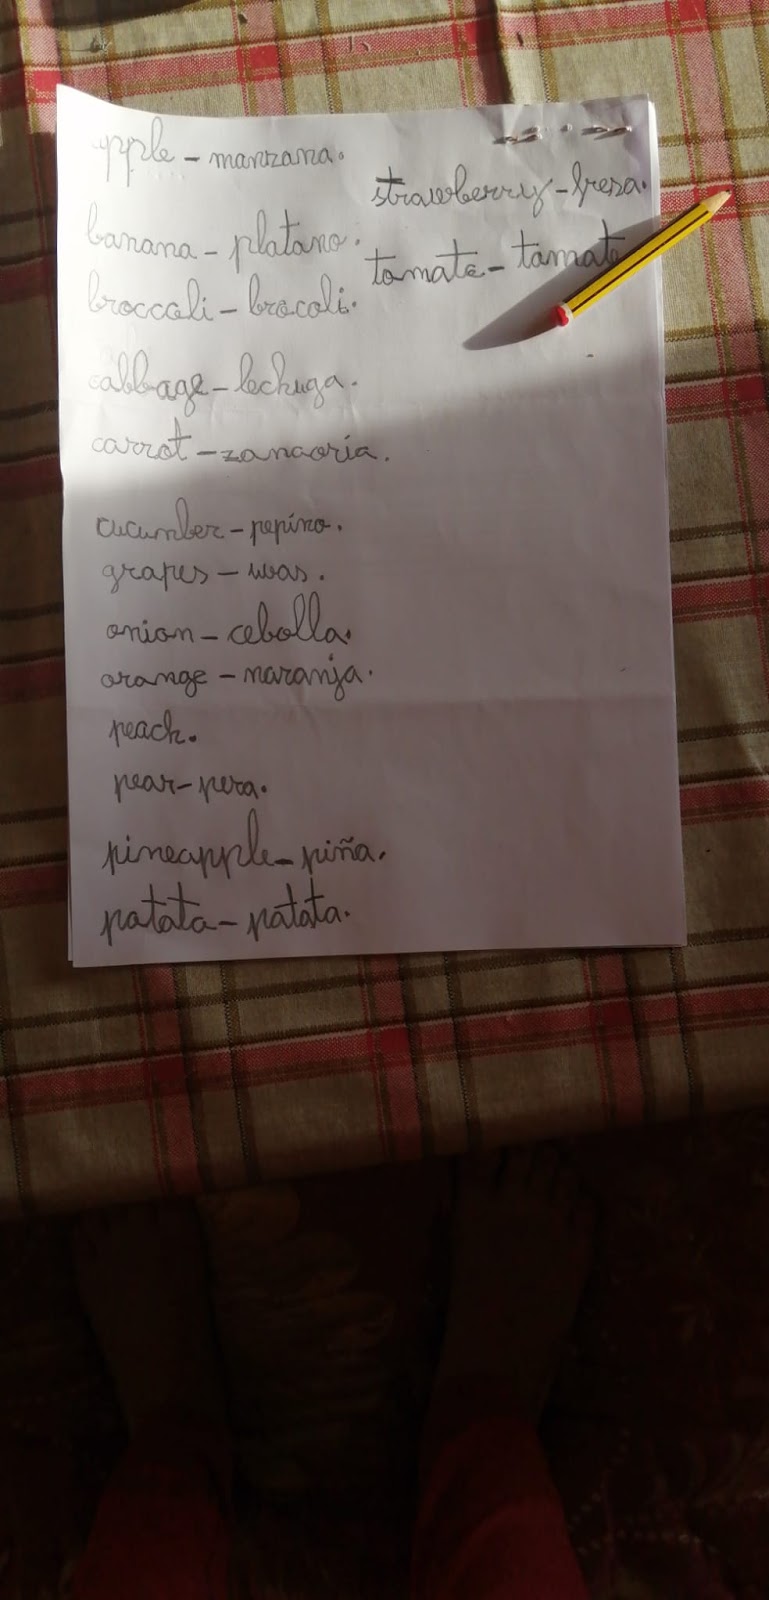 apple - manzana.
banana - platano.
broccoli - brócoli.
cabbage - lechuga.
carrot - zanaoría.
cucumber - pepino.
grapes - uvas.
onion - cebolla.
orange - naranja.
peach.
pear - pera.
pineapple - piña.
patata - patata.
strawberry - fresa.
tomate - tomate